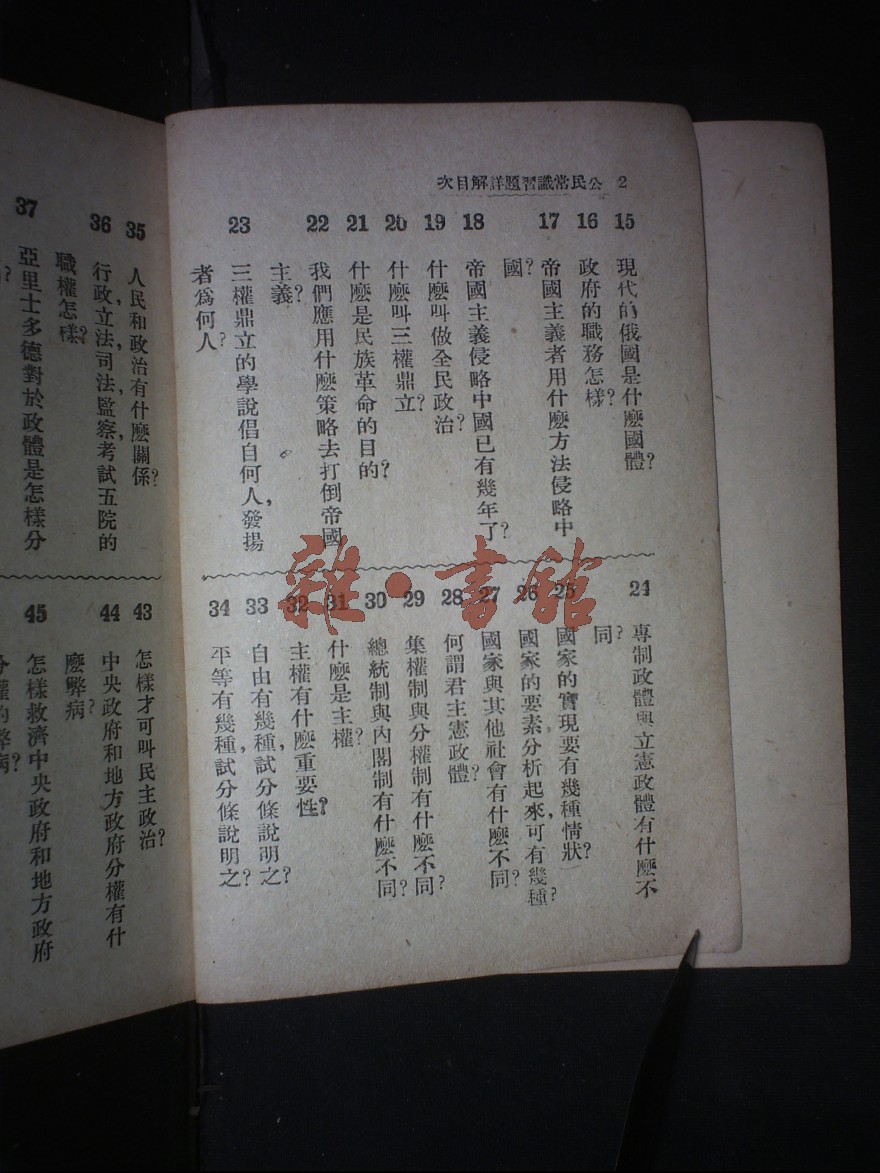 2 公民常識習題詳解目次
15 現代的俄國是什麽國體?
16 政府的職務怎樣?
17 帝國主義者用什麽方法侵略中
國?
18 帝國主義侵略中國已有幾年了?
19 什麽叫做全民政治?
20 什麽叫三權鼎立?
21 什麽是民族革命的目的?
22 我們應用什麽策略去打倒帝國
主義?
23 三權鼎立的學說倡自何人,發揚
者爲何人?
24 專制政體與立憲政體有什麽不
同?
25 國家的實現要有幾種情狀?
26 國家的要素分析起來,可有幾種?
27 國家與其他社會有什麽不同?
28 何謂君主憲政體?
29 集權制與分權制有什麽不同?
30 總統制與內閣制有什麽不同?
31 什麽是主權?
32 主權有什麽重要性?
33 自由有幾種,試分條說明之?
34 平等有幾種,試分條說明之?
35 人民和政治有什麽關係?
36 行政,立法,司法,監察,考試五院的
職權怎樣?
37 亞里士多德對於政體是怎樣分
?
43 怎樣才可叫民主政治?
44 中央政府和地方政府分權有什
麽弊病?
45 怎樣救濟中央政府和地方政府
分權的弊病?
雜·書館